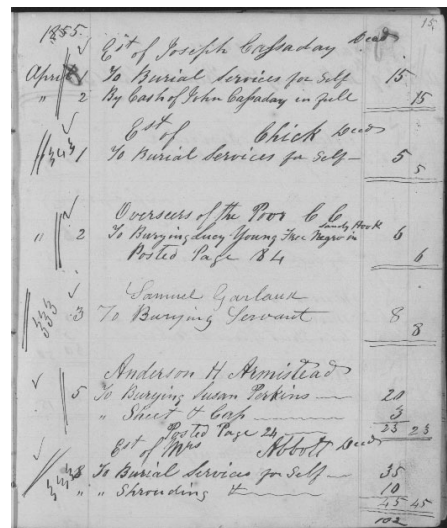 15
1855. Est of Joseph Cassaday Decd
April 1 To Burial Services for Self 15
" 2 By Cash of John Cassaday in full 15
Est of Chick Decd
1 To Burial Services for Self 5
5
Overseers of the Poor C C
" 2 To Burying Lucy Young Free Negro in Sandy Hook 6
Posted Page 184 6
Samuel Garland
3 To Burying Servant 8
8
Anderson H Armistead
5 To Burying Susan Perkins 20
" Sheet & Cap 3
Posted Page 24 23 23
Est of Mrs Abbott Decd
8 To Burial Services for Self 35
" " Shrouding 10
45 45
102